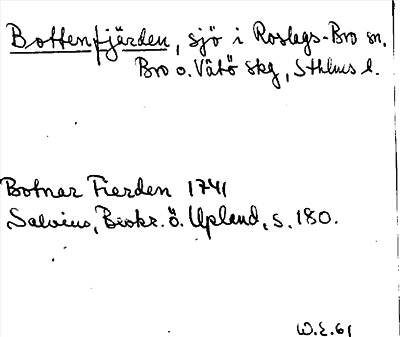 Bottenfjärden, sjö i Roslags-Bro sn,
Bro o. Vätö skg, Sthlms l.
Botnar Fierden 1741
Salvius, Beskr. ö. Upland, s. 180.
W.E. 61